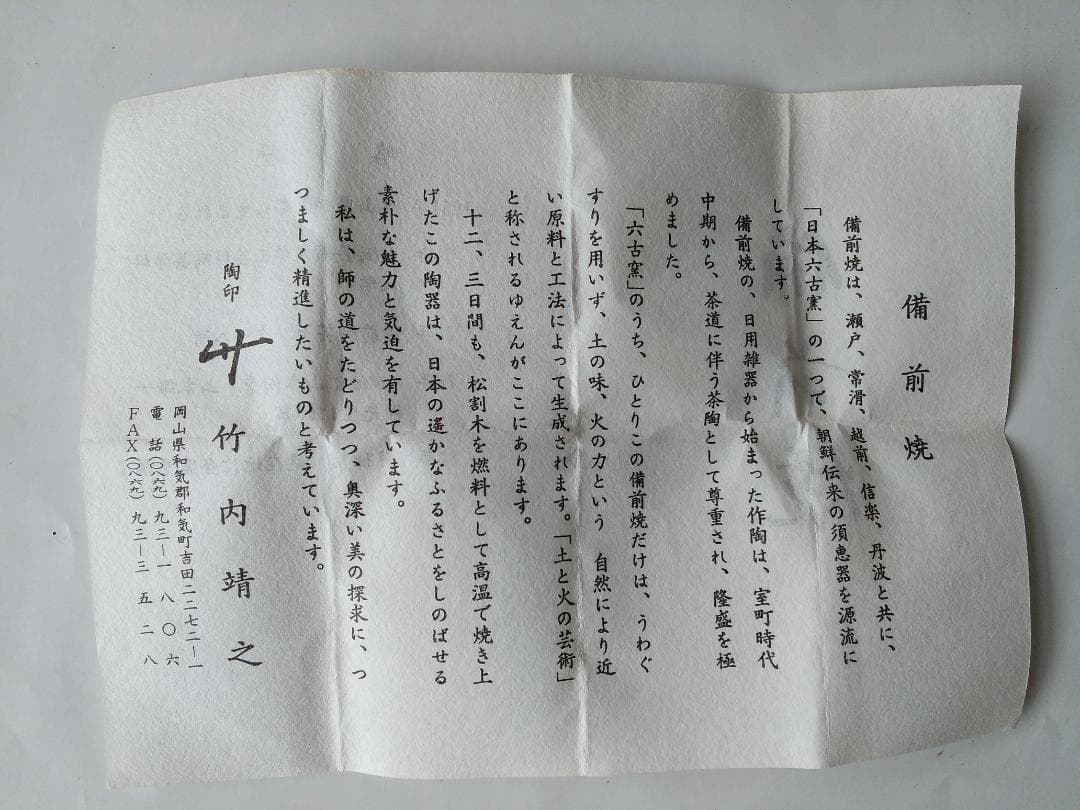 備前焼
備前焼は、瀬戸、常滑、越前、信楽、丹波と共に、
「日本六古窯」の一つで、朝鮮伝来の須恵器を源流に
しています。
備前焼の、日用雑器から始まった作陶は、室町時代
中期から、茶道に伴う茶陶として尊重され、隆盛を極
めました。
「六古窯」のうち、ひとりこの備前焼だけは、うわぐ
すりを用いず、土の味、火の力という 自然により近
い原料と工法によって生成されます。「土と火の芸術」
と称されるゆえんがここにあります。
十二、三日間も、松割木を燃料として高温で焼き上
げたこの陶器は、日本の遙かなふるさとをしのばせる
素朴な魅力と気迫を有しています。
私は、師の道をたどりつつ、奥深い美の探求に、つ
つましく精進したいものと考えています。
陶印 竹内靖之
岡山県和気郡和気町吉田二二七二―一
電話(〇八六九)九三―一八〇六
FAX(〇八六九)九三―三五二八